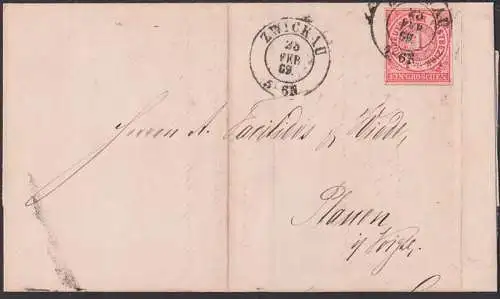 ZWICKAU
23
FEB
69.
5-6N
ZWICKAU
23
FEB
69.
5-6N
1
EIN GROSCHEN
Herrn A. Facilides & Wiede,
Plauen
i/ Voigtl.